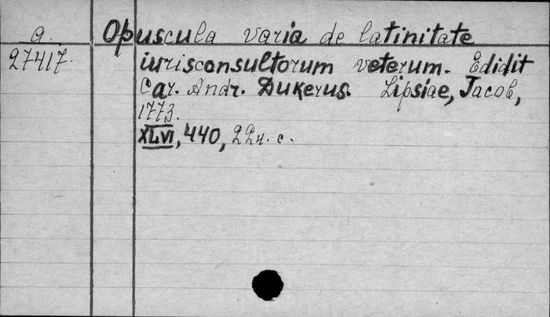 a.
27417.
Opuscula varia de latinitate
iurisconsultorum veterum. Edidit
Car. Andr. Dukerus. Lipsiae, Jacob,
1773.
XLVI, 440, 22н. с.